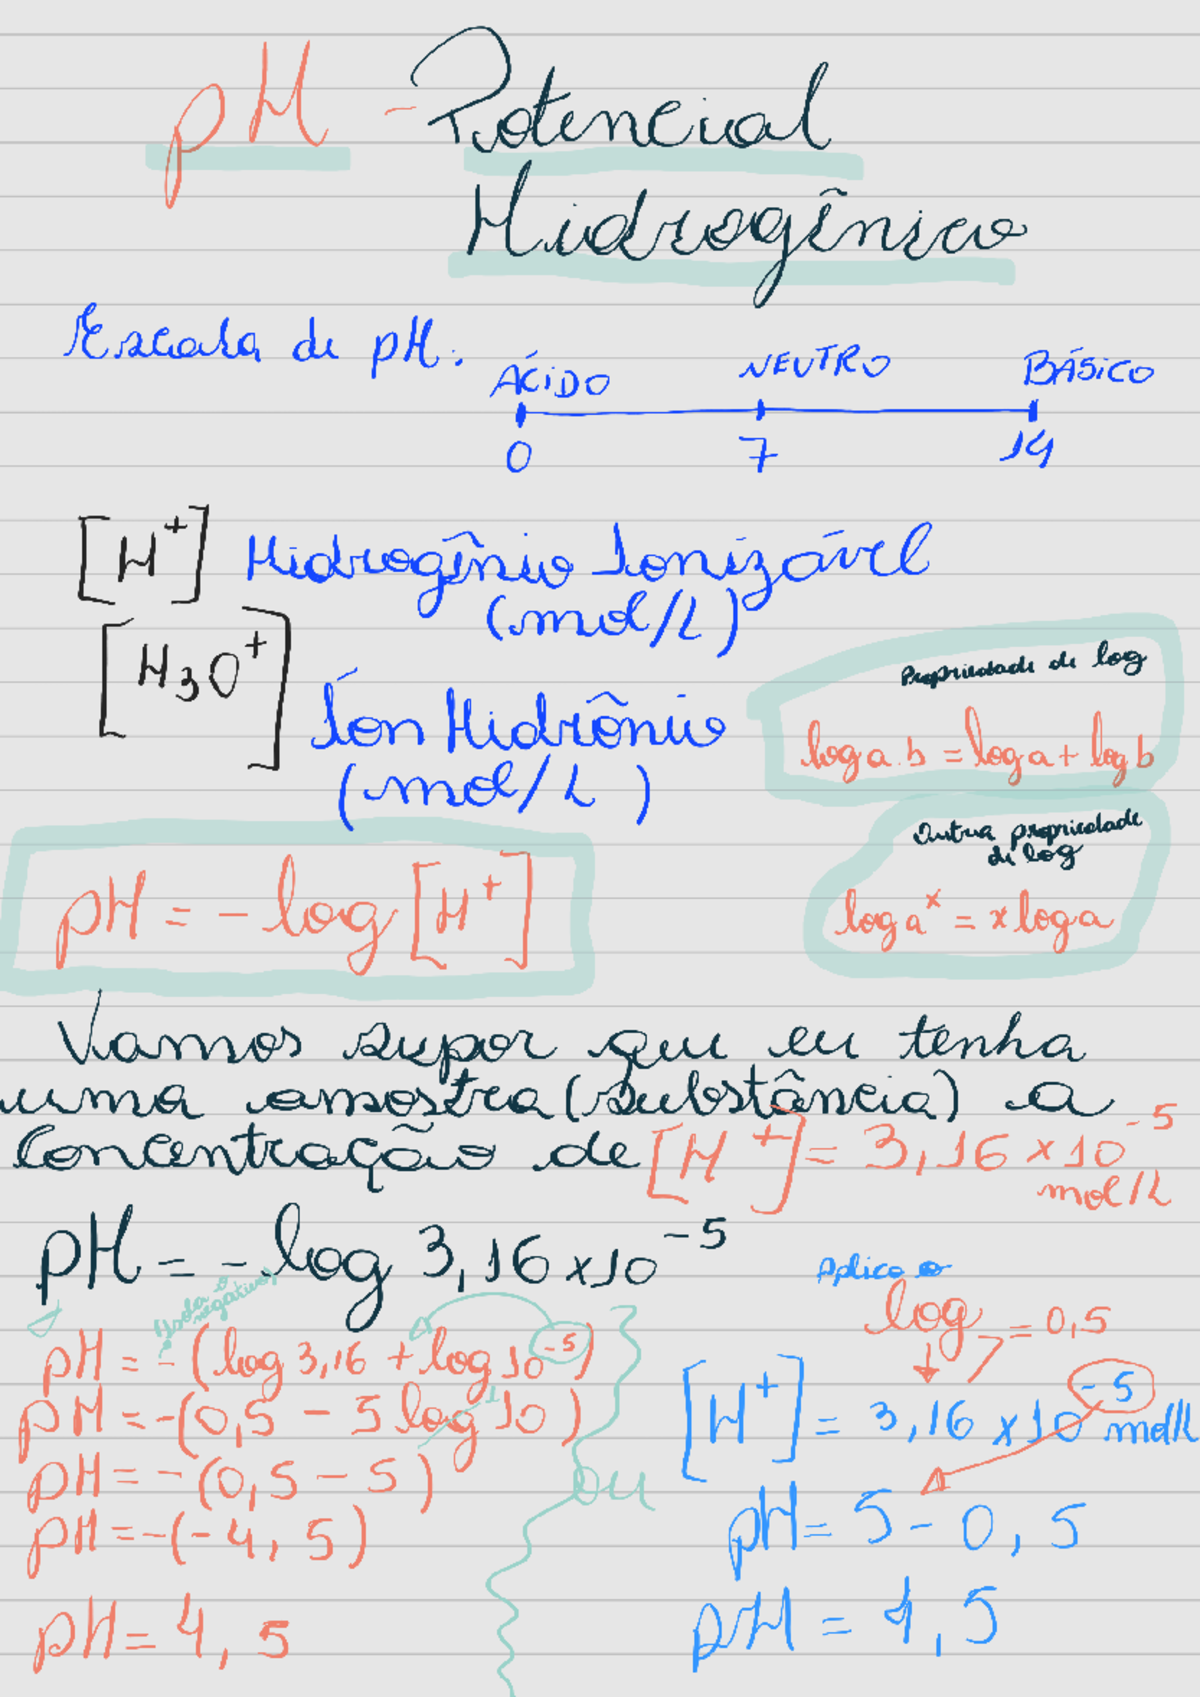 pH - Potencial
Hidrogênico
Escala de pH:
ÁCIDO NEUTRO BÁSICO
0 7 14
[H⁺] Hidrogênio Ionizável
(mol/L)
[H₃O⁺]
Íon Hidrônio
(mol/L)
Propriedade de log
log a.b = log a + log b
Outra propriedade
de log
log aˣ = x log a
pH = - log [H⁺]
Vamos supor que eu tenha
uma amostra (substância) a
Concentração de [H⁺] = 3,16 x 10⁻⁵
mol/L
pH = - log 3,16 x 10⁻⁵
Isola o
negativo
pH = - (log 3,16 + log 10⁻⁵)
pH = -(0,5 - 5 log 10)
1
pH = - (0,5 - 5)
pH = -(-4,5)
pH = 4,5
ou
Aplica o
log = 0,5
[H⁺] = 3,16 x 10⁻⁵ mol/L
pH = 5 - 0,5
pH = 4,5